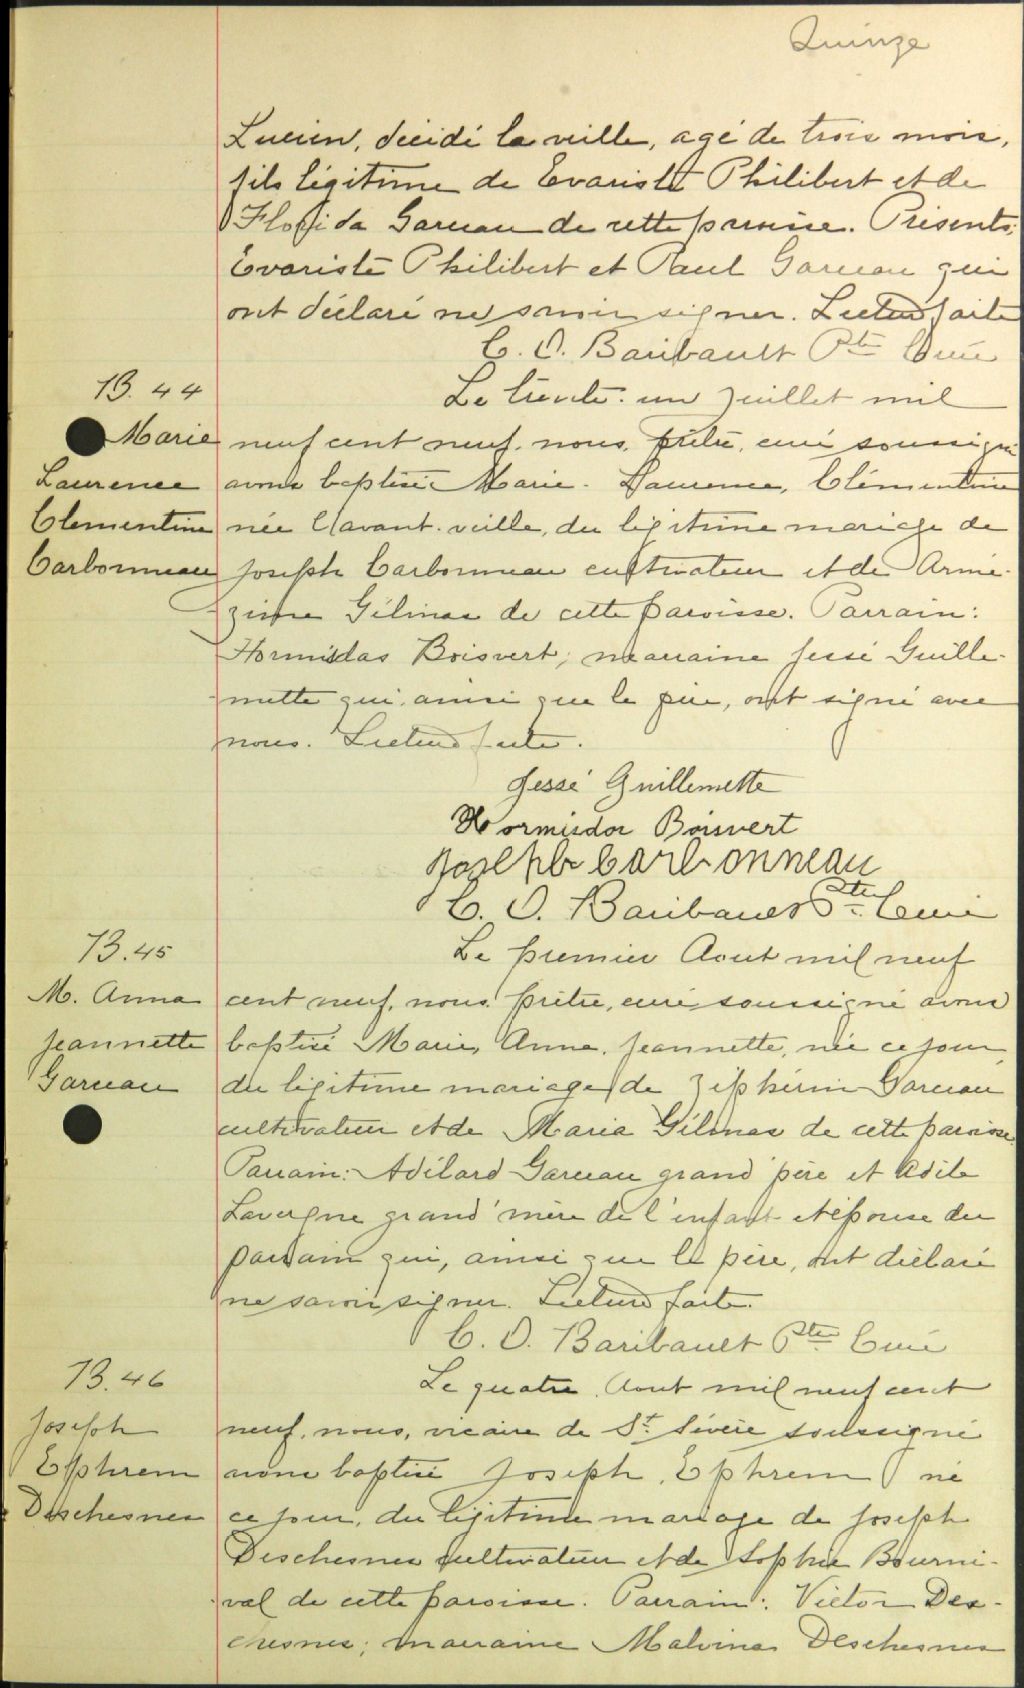 Quinze
Lucien, décidé la veille, agé de trois mois,
fils légitime de Evariste Philibert et de
Florida Garceau de cette paroisse. Présents:
Evariste Philibert et Paul Garceau qui
ont déclaré ne savoir signer. Lecture faite
C. O. Baribault Ptre Curé
B. 44
Marie
Laurence
Clementine
Carbonneau
Le trente-un Juillet mil
neuf cent neuf, nous, prêtre, curé soussigné
avons baptisé Marie-Laurence, Clémentine
née l'avant-veille, du légitime mariage de
Joseph Carbonneau cultivateur et de Armé-
zime Gélinas de cette paroisse. Parrain:
Hormisdas Boisvert; marraine Jessé Guille-
mette qui, ainsi que le père, ont signé avec
nous. Lecture faite.
Jessé Guillemette
Hormisdas Boisvert
Joseph Carbonneau
C. O. Baribault Ptre Curé
B. 45
M. Anna
Jeannette
Garceau
Le premier Aout mil neuf
cent neuf, nous, prêtre, curé soussigné avons
baptisé Marie, Anna, Jeannette, née ce jour
du légitime mariage de Zéphirin Garceau
cultivateur et de Maria Gélinas de cette paroisse.
Parrain: Adélard Garceau grand'père et Adèle
Lavergne grand'mère de l'enfant et épouse du
parrain qui, ainsi que le père, ont déclaré
ne savoir signer. Lecture faite.
C. O. Baribault Ptre Curé
B. 46
Joseph
Ephrem
Deschesnes
Le quatre Aout mil neuf cent
neuf, nous, vicaire de St. Sévère soussigné
avons baptisé Joseph, Ephrem né
ce jour, du légitime mariage de Joseph
Deschesnes cultivateur et de Sophie Bourni-
val de cette paroisse. Parrain: Victor Des-
chesnes; marraine Malvina Deschesnes